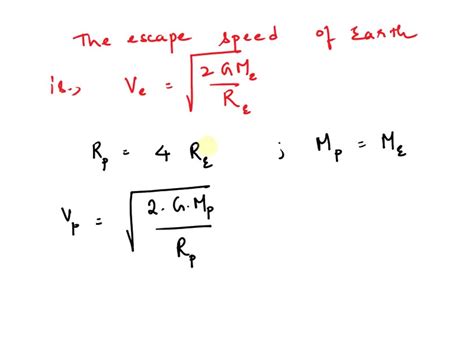 The escape speed of Earth
is., Ve = √(2GMe/RE)
Rp = 4 RE ; Mp = ME
Vp = √(2.G.Mp/Rp)